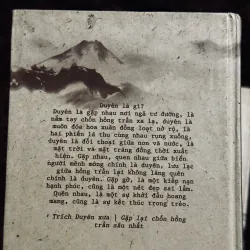 Duyên là gì?
Duyên là gặp nhau nơi ngã tư đường, là
nắm tay chốn hồng trần xa lạ, duyên là
muôn đóa hoa xuân đồng loạt nở rộ, là
hai phiến lá thu cùng nhau rụng xuống,
duyên là đối thoại giữa non và nước, là
mặt trời và mặt trăng đồng thời xuất
hiện. Gặp nhau, quen nhau giữa biển
người mênh mông chính là duyên, lưu lạc
giữa hồng trần lại không lãng quên
chính là duyên. Gặp gỡ, là một kiếp nạn
hạnh phúc, cũng là một nét đẹp sai lầm.
Quên nhau, là một sự khởi đầu hoang
mang, cũng là sự kết thúc trong trẻo.
Trích Duyên xưa | Gặp lại chốn hồng
trần sâu nhất